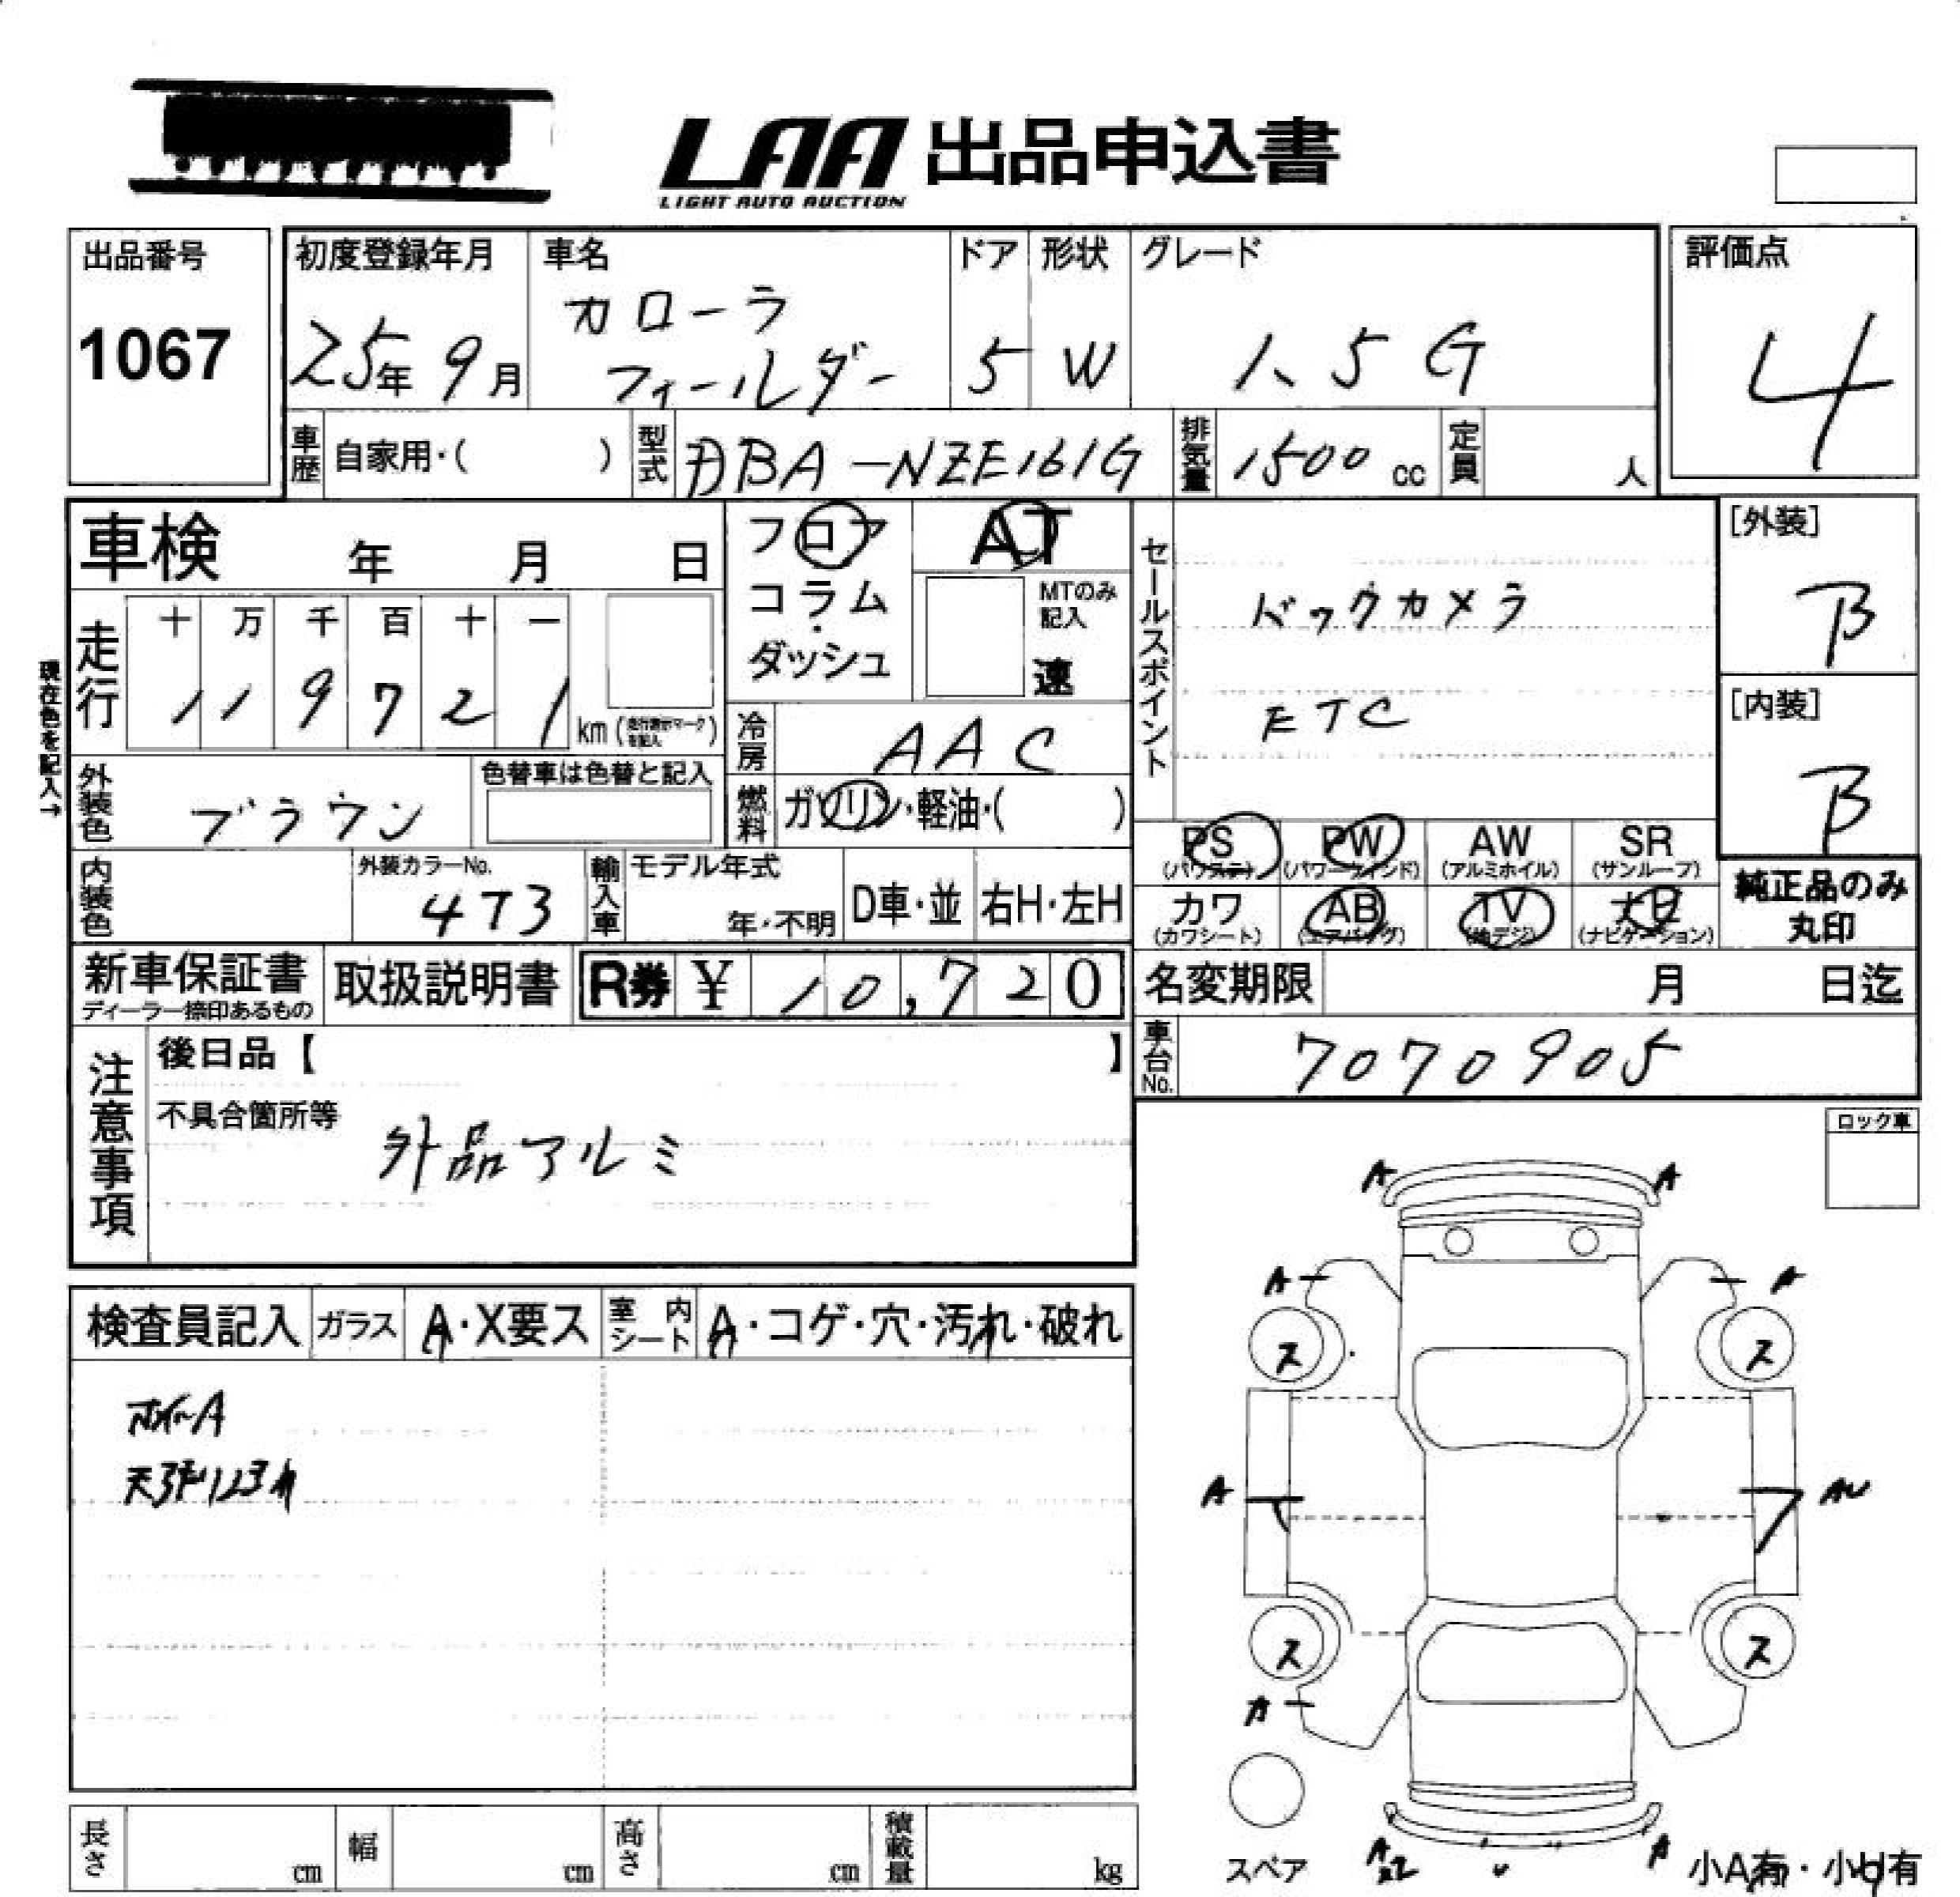 LAA 出品申込書
LIGHT AUTO AUCTION
出品番号
1067
初度登録年月
25年 9月
車名
カローラ
フィールダー
ドア
5
形状
W
グレード
1.5G
評価点
4
車歴 自家用・( )
型式 DBA-NZE161G
排気量 1500 cc
定員 人
車検 年 月 日
フロア
コラム
・
ダッシュ
AT
MTのみ
記入
速
セールスポイント
バックカメラ
ETC
[外装]
B
[内装]
B
現在色を記入→
走行 十 万 千 百 十 一
1 1 9 7 2 1 km (走行表示マークを記入)
冷房 AAC
外装色 ブラウン
色替車は色替と記入
燃料 ガソリン・軽油・( )
PS (パワステ) PW (パワーウインド) AW (アルミホイル) SR (サンルーフ)
カワ (カワシート) AB (エアバッグ) TV (地デジ) ナビ (ナビゲーション)
純正品のみ
丸印
内装色
外装カラーNo.
4T3
輸入車 モデル年式
年・不明 D車・並 右H・左H
新車保証書
ディーラー捺印あるもの
取扱説明書
R券 ¥ 10,720
名変期限 月 日迄
車台No. 7070905
注意事項
後日品【 】
不具合箇所等
外品アルミ
ロック車
検査員記入 ガラス A・X要ス 室内シート A・コゲ・穴・汚れ・破れ
A
A
A
A
ス
ス
ホイルA
天張り汚れ
A
AU
ス
ス
A
スペア
A
A
小A有・小U有
長さ cm
幅 cm
高さ cm
積載量 kg